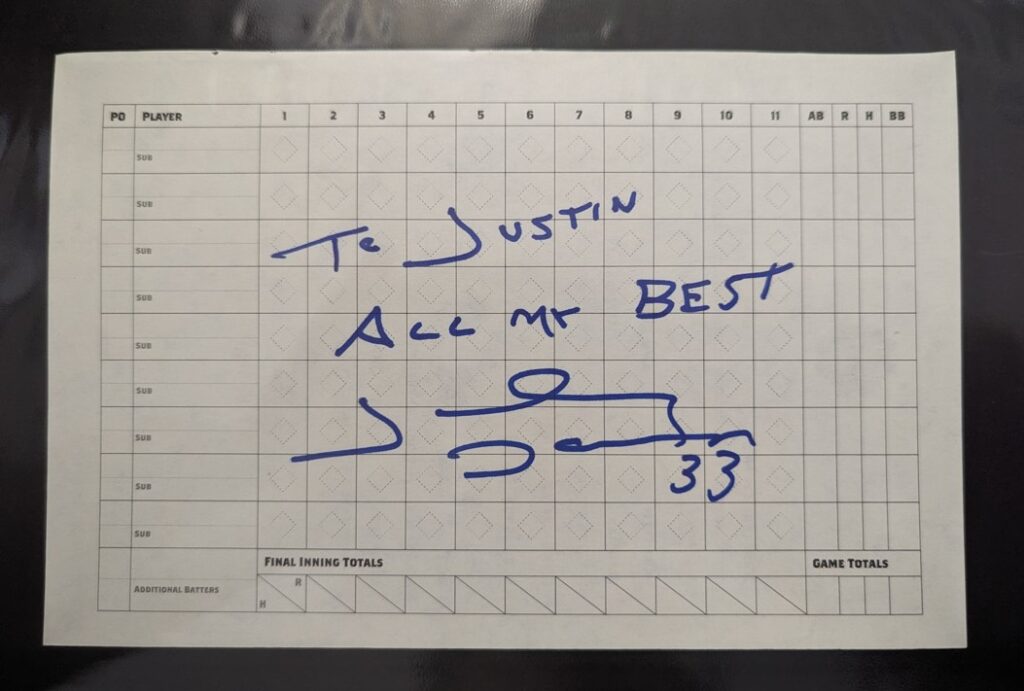 PO PLAYER 1 2 3 4 5 6 7 8 9 10 11 AB R H BB
SUB
SUB
TO JUSTIN
SUB
ALL MY BEST
SUB
SUB
SUB
SUB
33
SUB
SUB
FINAL INNING TOTALS GAME TOTALS
ADDITIONAL BATTERS R
H